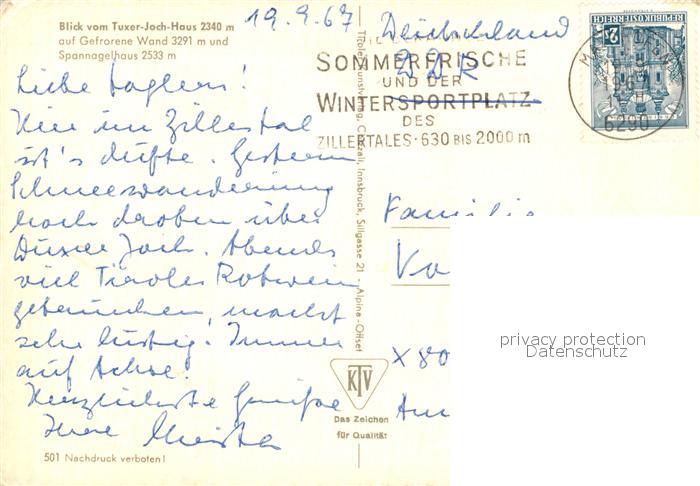 Blick vom Tuxer-Joch-Haus 2340 m
auf Gefrorene Wand 3291 m und
Spannagelhaus 2533 m
19.9.67
Liebe
Hier im Zillertal
ist's dufte. Gestern
Schneewanderung
hoch droben über
Tuxer Joch. Abends
viel Tiroler Rotwein
getrunken, macht
sehr lustig. Immer
auf Achse!
Herzlichste Grüße
Ihre
501 Nachdruck verboten!
Tiroler Kunstverlag, Chizzali, Innsbruck, Sillgasse 21 - Alpina-Offset
KTV
Das Zeichen
für Qualität
Deutschland
DDR
SOMMERFRISCHE
UND DER
WINTERSPORTPLATZ
DES
ZILLERTALES · 630 BIS 2000 m
REPUBLIK ÖSTERREICH
6290
Familie
X 80
privacy protection
Datenschutz